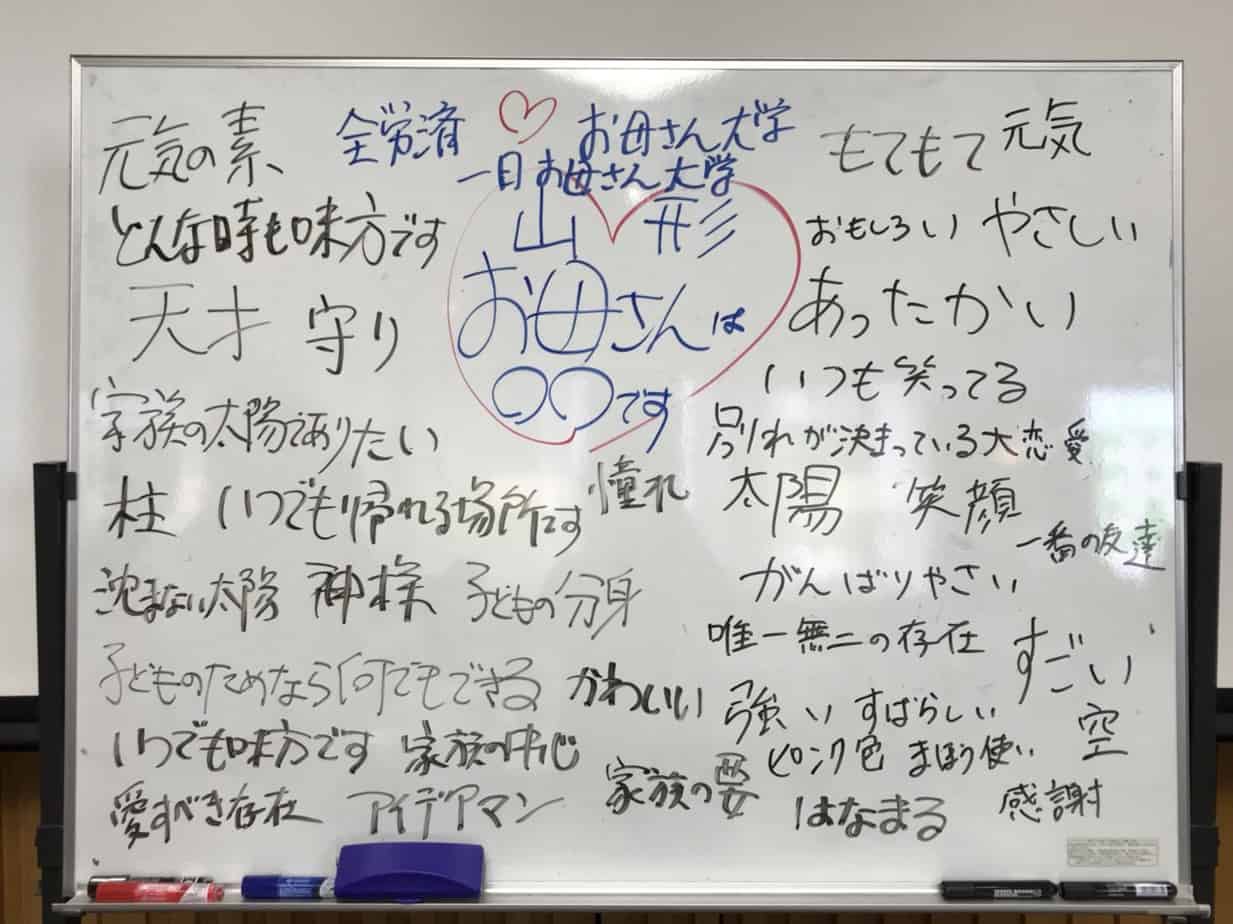 全労済 ♡ お母さん大学
一日お母さん大学
山形
お母さんは
〇〇です
元気の素
どんな時も味方です
天才 守り
家族の太陽でありたい
柱 いつでも帰れる場所です 憧れ
沈まない太陽 神様 子どもの分身
子どものためなら何でもできる かわいい
いつでも味方です 家族の中心
愛すべき存在 アイデアマン 家族の要
もてもて 元気
おもしろい やさしい
あったかい
いつも笑ってる
別れが決まっている大恋愛
太陽 笑顔
一番の友達
がんばりやさい
唯一無二の存在 すごい
強い すばらしい 空
ピンク色 まほう使い
はなまる 感謝